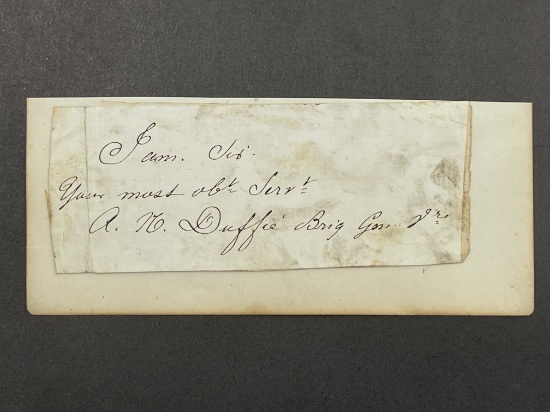 I am. Sir.
Your most obt Servt
A. N. Duffié Brig Gen